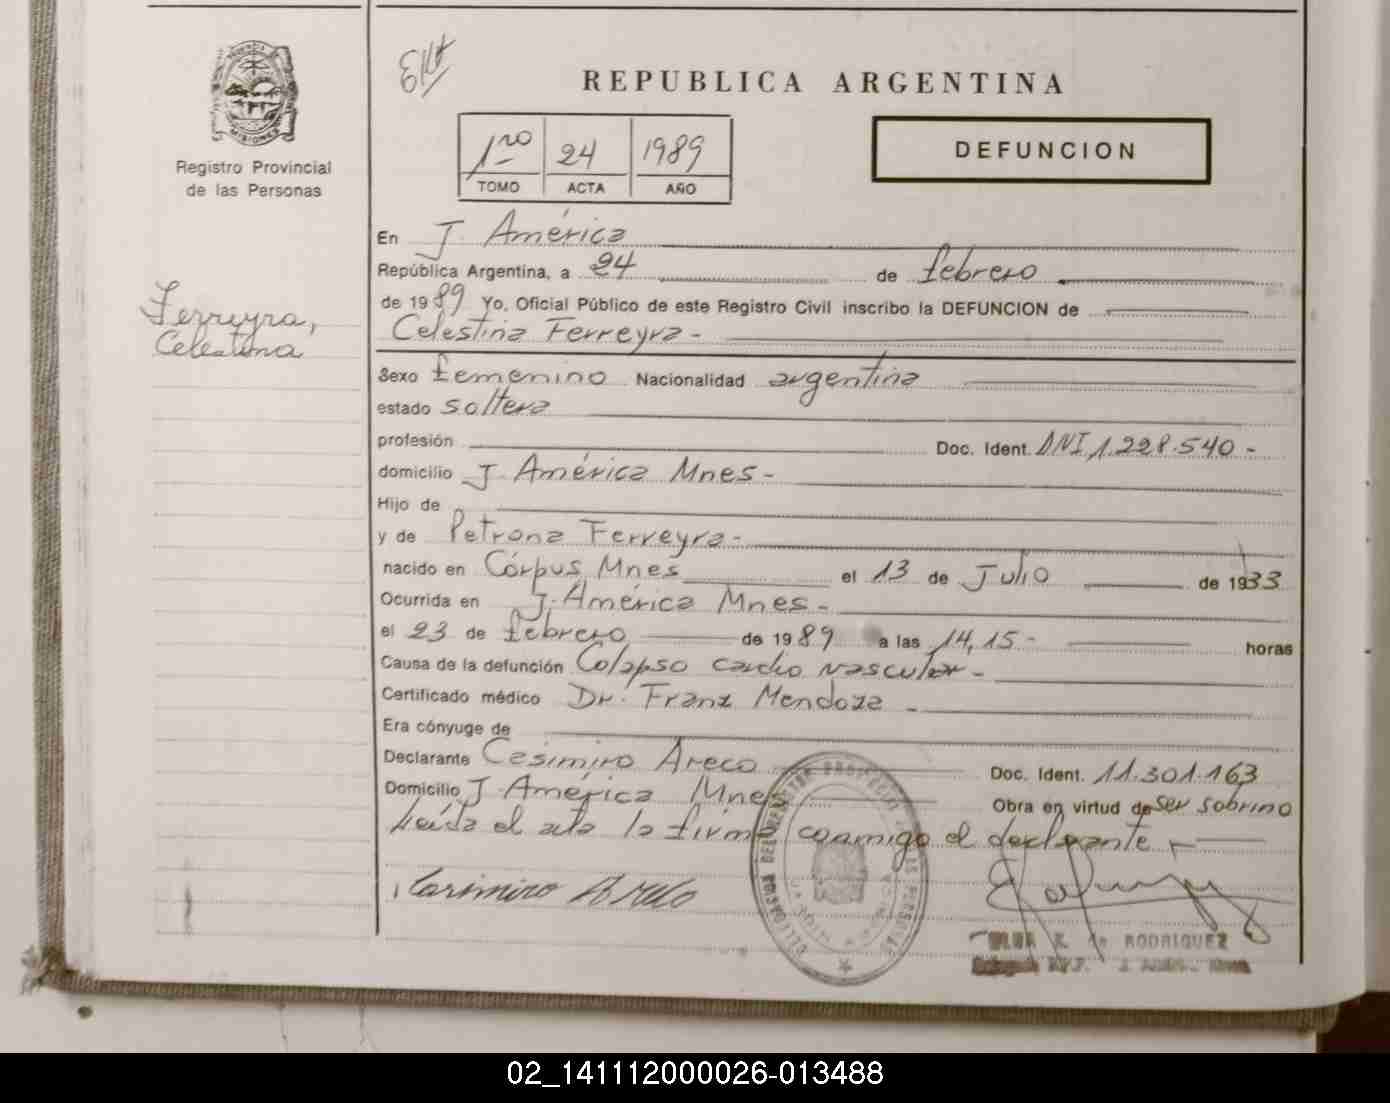 PROVINCIA DE
MISIONES
Registro Provincial
de las Personas
Ferreyra,
Celestina
REPUBLICA ARGENTINA
1ro 24 1989
TOMO ACTA AÑO
DEFUNCION
En J. América
República Argentina, a 24 de febrero
de 1989 Yo, Oficial Público de este Registro Civil inscribo la DEFUNCION de
Celestina Ferreyra -
Sexo femenino Nacionalidad argentina
estado soltera
profesión Doc. Ident. DNI 1.228.540 -
domicilio J. América Mnes -
Hijo de
y de Petrona Ferreyra -
nacido en Córpus Mnes el 13 de Julio de 1933
Ocurrida en J. América Mnes -
el 23 de febrero de 1989 a las 14,15 - horas
Causa de la defunción Colapso cardio vascular -
Certificado médico Dr. Franz Mendoza -
Era cónyuge de
Declarante Casimiro Areco Doc. Ident. 11.301.163
Domicilio J. América Mnes Obra en virtud de ser sobrino
Leída el acta la firma conmigo el declarante -
Casimiro Areco
DE RODRIGUEZ
02_141112000026-013488